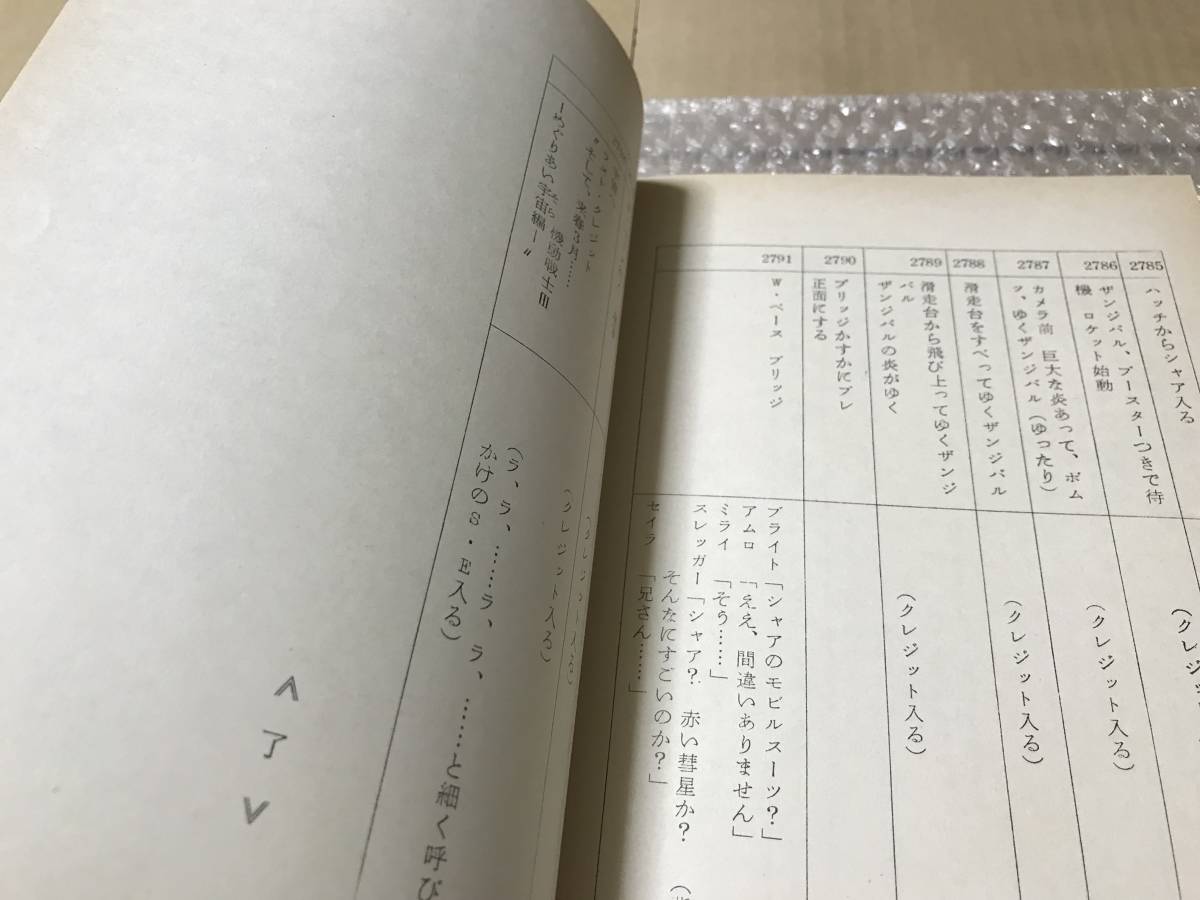 2785
ハッチからシャア入る
(クレジッ
2786
ザンジバル、ブースターつきで待
機 ロケット始動
(クレジット入る)
2787
カメラ前 巨大な炎あって、ボム
ッ、ゆくザンジバル(ゆったり)
(クレジット入る)
2788
滑走台をすべってゆくザンジバル
2789
滑走台から飛び上ってゆくザンジ
バル
ザンジバルの炎がゆく
(クレジット入る)
2790
ブリッジかすかにブレ
正面にする
2791
W・ベース ブリッジ
ブライト「シャアのモビルスーツ?」
アムロ 「ええ、間違いありません」
ミライ 「そう……」
スレッガー「シャア? 赤い彗星か?
そんなにすごいのか?」
セイラ 「兄さん……」
(クレジット入る)
(クレジット入る)
クレジット
〝そして、来春3月……
機動戦士III
ーめぐりあい宇宙編ー〟
そら
(ラ、ラ、……ラ、ラ、……と細く呼び
かけのS・E入る)
<了>